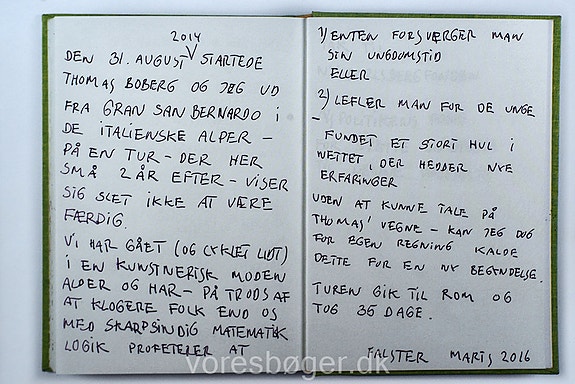 2014
DEN 31. AUGUST STARTEDE
THOMAS BOBERG OG JEG UD
FRA GRAN SAN BERNARDO I
DE ITALIENSKE ALPER –
PÅ EN TUR – DER HER
SMÅ 2 ÅR EFTER – VISER
SIG SLET IKKE AT VÆRE
FÆRDIG.
VI HAR GÅET (OG CYKLET LIDT)
I EN KUNSTNERISK MODEN
ALDER OG HAR – PÅ TRODS AF
AT KLOGERE FOLK END OS
MED SKARPSINDIG MATEMATISK
LOGIK PROFETERER AT
1) ENTEN FORSVÆRGER MAN
SIN UNGDOMSTID
ELLER
2) LEFLER MAN FOR DE UNGE
–
FUNDET ET STORT HUL I
NETTET, DER HEDDER NYE
ERFARINGER
UDEN AT KUNNE TALE PÅ
THOMAS' VEGNE – KAN JEG DOG
FOR EGEN REGNING KALDE
DETTE FOR EN NY BEGYNDELSE.
TUREN GIK TIL ROM OG
TOG 36 DAGE.
FALSTER MARTS 2016
voresbøger.dk